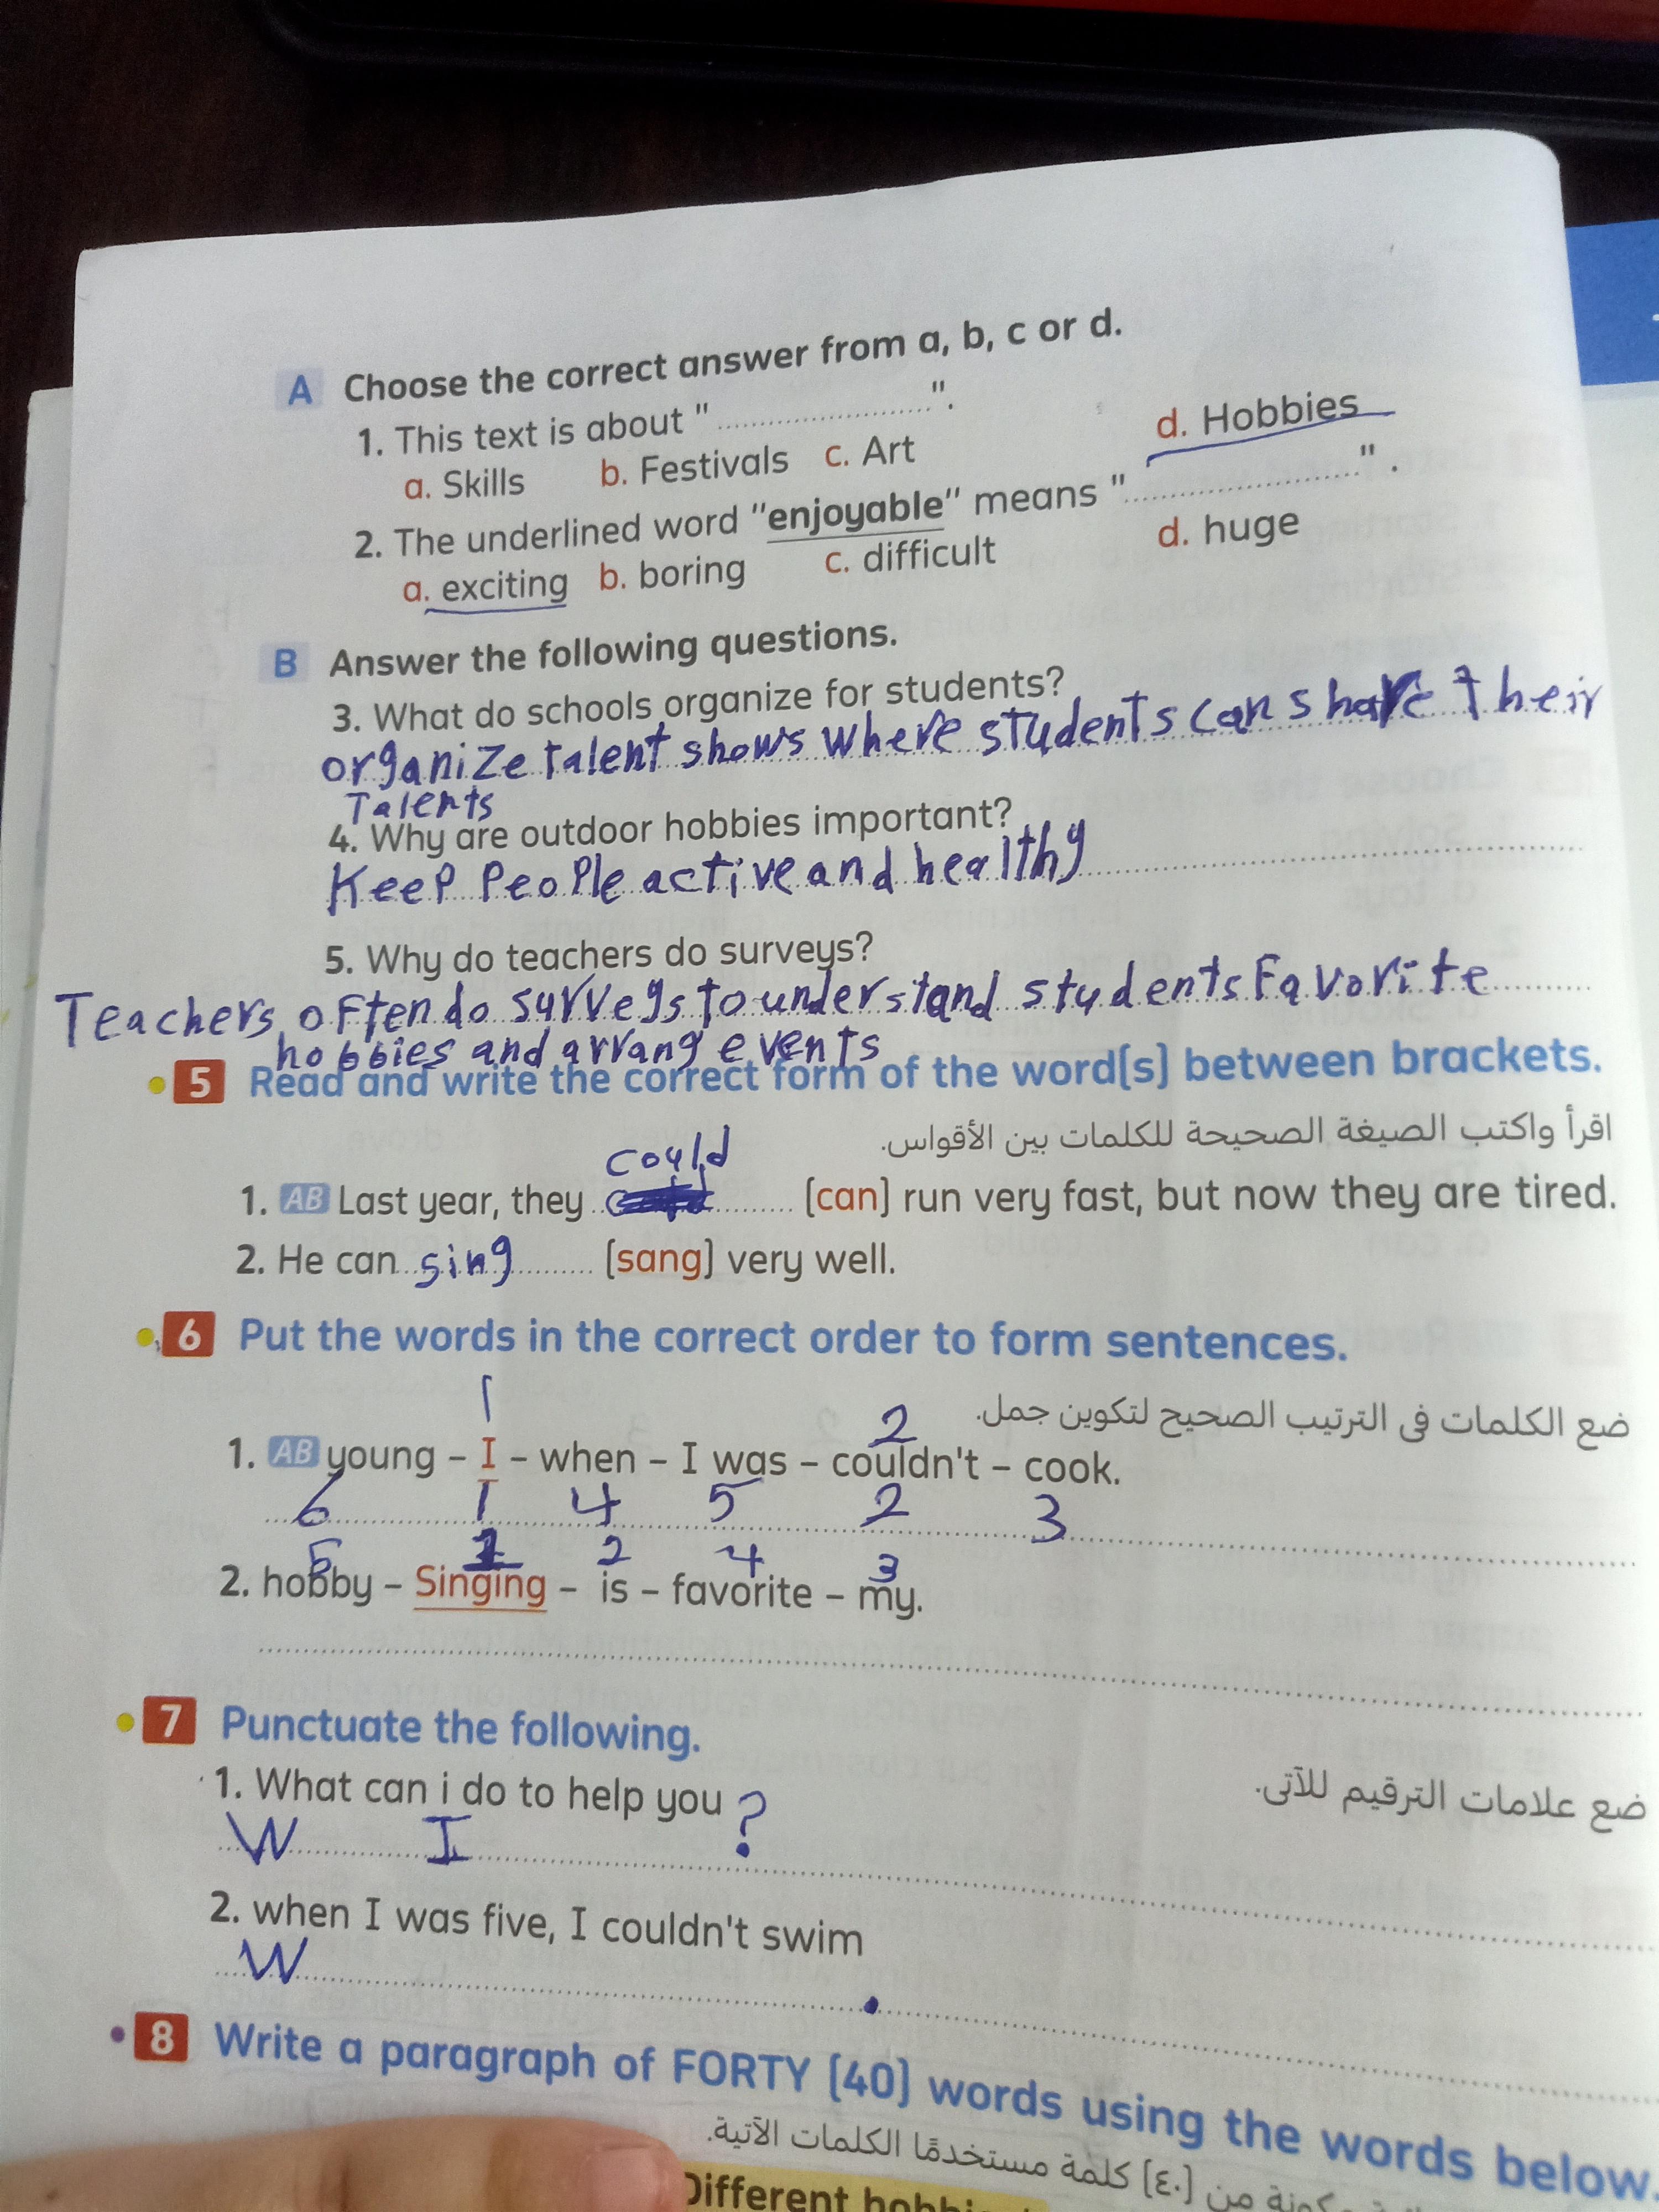 A Choose the correct answer from a, b, c or d.
1. This text is about " .................... ".
a. Skills b. Festivals c. Art d. Hobbies
2. The underlined word "enjoyable" means " .................... " .
a. exciting b. boring c. difficult d. huge
B Answer the following questions.
3. What do schools organize for students?
organize talent shows where students can share Their
Talents
4. Why are outdoor hobbies important?
Keep People active and healthy
5. Why do teachers do surveys?
Teachers often do surveys to understand students Favorite
hobbies and arrang events
5 Read and write the correct form of the word(s) between brackets.
اقرأ واكتب الصيغة الصحيحة للكلمات بين الأقواس.
could
1. AB Last year, they .......... (can) run very fast, but now they are tired.
2. He can sing .......... (sang) very well.
6 Put the words in the correct order to form sentences.
ضع الكلمات في الترتيب الصحيح لتكوين جمل.
1 2
1. AB young – I – when – I was – couldn't – cook.
6 1 4 5 2 3
5 1 2 4 3
2. hobby – Singing – is – favorite – my.
7 Punctuate the following.
ضع علامات الترقيم للآتى.
1. What can i do to help you ?
W I
2. when I was five, I couldn't swim
W .
8 Write a paragraph of FORTY (40) words using the words below.
من (٤٠) كلمة مستخدمًا الكلمات الآتية.
Different